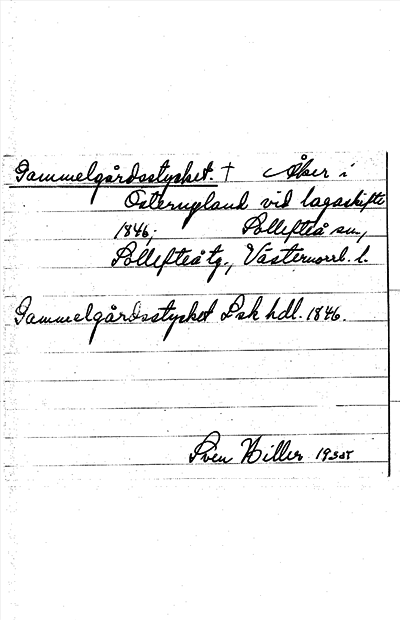 Gammelgårdsstycket. † Åker i
Östernyland vid lagaskifte
1846,- Sollefteå sn.,
Sollefteå tg., Västernorrl. l.
Gammelgårdsstycket Lsk hdl. 1846.
Sven Hiller